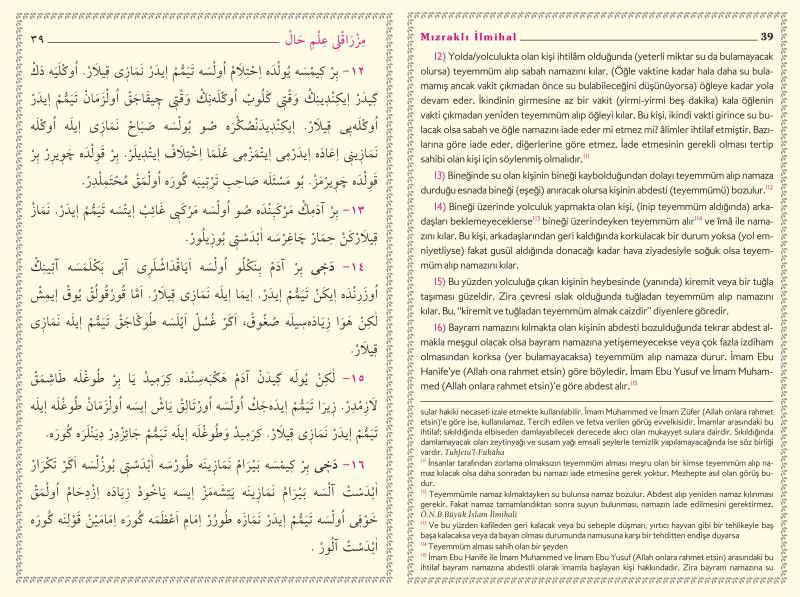 مِزْرَاقْلِى عِلْمِ حَالْ ٣٩
١٢- بِرْ كِيمْسَه يُولْدَه اِحْتِلَامْ اُولْسَه تَيَمُّمْ اِيدَرْ نَمَازِى قِيلَارْ. اُوكْلَيَه دَكْ
كِيدَرْ اِيكِنْدِينِكْ وَقْتِى كَلُوبْ اُوكْلَەنِكْ وَقْتِى چِيقَاجَقْ اُولْزَمَانْ تَيَمُّمْ اِيدَرْ
اُوكْلَەيِى قِيلَارْ. اِيكِنْدِيدَنْصُكْرَه صُو بُولْسَه صَبَاحْ نَمَازِى اِيلَه اُوكْلَه
نَمَازِينِى اِعَادَه اِيدَرْمِى اِيتْمَزْمِى عُلَمَا اِخْتِلَافْ اِيتْدِيلَرْ. بِرْ قَوْلْدَه چَوِيرِرْ بِرْ
قَوْلْدَه چَوِيرْمَزْ. بُو مَسْئَلَه صَاحِبِ تَرْتِيبَه كُورَه اُولْمَقْ مُحْتَمِلْدِرْ.
١٣- بِرْ آدَمِكْ مَرْكَبِنْدَه صُو اُولْسَه مَرْكَبِى غَائِبْ اِيتْسَه تَيَمُّمْ اِيدَرْ. نَمَازْ
قِيلَارْكَنْ حِمَارْ چَاغِرْسَه اَبْدَسْتِى بُوزِيلُورْ.
١٤- دَخِى بِرْ آدَمْ بِنَكْلُو اُولْسَه اَيَاقْدَاشْلَرِى آنِى بَكْلَمَسَه آتِينِكْ
اُوزَرِنْدَه اِيكَنْ تَيَمُّمْ اِيدَرْ. اِيمَا اِيلَه نَمَازِى قِيلَارْ. اَمَّا قُورْقُولْقْ يُوقْ اِيمِشْ
لَكِنْ هَوَا زِيَادَەسِيلَه صُغُوقْ، اَكَرْ غُسُلْ اَيْلَسَه طُوكَاجَقْ تَيَمُّمْ اِيلَه نَمَازِى
قِيلَارْ.
١٥- لَكِنْ يُولَه كِيدَنْ آدَمْ هَكْبَەسِنْدَه كِرَمِيدْ يَا بِرْ طُوغْلَه طَاشِمَقْ
لَازِمْدِرْ. زِيرَا تَيَمُّمْ اِيدَەجَكْ اُولْسَه اُورْتَالِقْ يَاشْ اِيسَه اُولْزَمَانْ طُوغْلَه اِيلَه
تَيَمُّمْ اِيدَرْ نَمَازِى قِيلَارْ. كِرَمِيدْ وَطُوغْلَه اِيلَه تَيَمُّمْ جَائِزْدِرْ دِيَنْلَرَه كُورَه.
١٦- دَخِى بِرْ كِيمْسَه بَيْرَامْ نَمَازِينَه طُورْسَه اَبْدَسْتِى بُوزُلْسَه اَكَرْ تَكْرَارْ
اَبْدَسْتْ آلْسَه بَيْرَامْ نَمَازِينَه يَتِشَەمَزْ اِيسَه يَاخُودْ زِيَادَه اِزْدِحَامْ اُولْمَقْ
خَوْفِى اُولْسَه تَيَمُّمْ اِيدَرْ نَمَازَه طُورُرْ اِمَامِ اَعْظَمَه كُورَه اِمَامَيْنْ قَوْلِنَه كُورَه
اَبْدَسْتْ آلُورْ .
Mızraklı İlmihal 39
12) Yolda/yolculukta olan kişi ihtilâm olduğunda (yeterli miktar su da bulamayacak
olursa) teyemmüm alıp sabah namazını kılar. (Öğle vaktine kadar hala daha su bula-
mamış ancak vakit çıkmadan önce su bulabileceğini düşünüyorsa) öğleye kadar yola
devam eder. İkindinin girmesine az bir vakit (yirmi-yirmi beş dakika) kala öğlenin
vakti çıkmadan yeniden teyemmüm alıp öğleyi kılar. Bu kişi, ikindi vakti girince su bu-
lacak olsa sabah ve öğle namazını iade eder mi etmez mi? âlimler ihtilaf etmiştir. Bazı-
larına göre iade eder, diğerlerine göre etmez. İade etmesinin gerekli olması tertip
sahibi olan kişi için söylenmiş olmalıdır.¹¹
13) Bineğinde su olan kişinin bineği kaybolduğundan dolayı teyemmüm alıp namaza
durduğu esnada bineği (eşeği) anıracak olursa kişinin abdesti (teyemmümü) bozulur.¹²
14) Bineği üzerinde yolculuk yapmakta olan kişi, (inip teyemmüm aldığında) arka-
daşları beklemeyeceklerse¹³ bineği üzerindeyken teyemmüm alır¹⁴ ve îmâ ile nama-
zını kılar. Bu kişi, arkadaşlarından geri kaldığında korkulacak bir durum yoksa (yol em-
niyetliyse) fakat gusül aldığında donacağı kadar hava ziyadesiyle soğuk olsa teyem-
müm alıp namazını kılar.
15) Bu yüzden yolculuğa çıkan kişinin heybesinde (yanında) kiremit veya bir tuğla
taşıması güzeldir. Zira çevresi ıslak olduğunda tuğladan teyemmüm alıp namazını
kılar. Bu, “kiremit ve tuğladan teyemmüm almak caizdir” diyenlere göredir.
16) Bayram namazını kılmakta olan kişinin abdesti bozulduğunda tekrar abdest al-
makla meşgul olacak olsa bayram namazına yetişemeyecekse veya çok fazla izdiham
olmasından korksa (yer bulamayacaksa) teyemmüm alıp namaza durur. İmam Ebu
Hanife'ye (Allah ona rahmet etsin) göre böyledir. İmam Ebu Yusuf ve İmam Muham-
med (Allah onlara rahmet etsin)'e göre abdest alır.¹⁵
sular hakiki necaseti izale etmekte kullanılabilir. İmam Muhammed ve İmam Züfer (Allah onlara rahmet
etsin)'e göre ise, kullanılamaz. Tercih edilen ve fetva verilen görüş evvelkisidir. İmamlar arasındaki bu
ihtilaf; sıkıldığında elbiseden damlayabilecek derecede akıcı olan mukayyet sulara dairdir. Sıkıldığında
damlamayacak olan zeytinyağı ve susam yağı emsali şeylerle temizlik yapılamayacağında ise söz birliği
vardır. Tuhfetu'l-Fukâha
¹¹ İnsanlar tarafından zorlama olmaksızın teyemmüm alması meşru olan bir kimse teyemmüm alıp na-
maz kılacak olsa daha sonradan bu namazı iade etmesine gerek yoktur. Mezhepte asıl olan görüş bu-
dur.
¹² Teyemmümle namaz kılmaktayken su bulunsa namaz bozulur. Abdest alıp yeniden namaz kılınması
gerekir. Fakat namaz tamamlandıktan sonra suyun bulunması, namazın iade edilmesini gerektirmez.
Ö.N.B Büyük İslam İlmihali
¹³ Ve bu yüzden kafileden geri kalacak veya bu sebeple düşman, yırtıcı hayvan gibi bir tehlikeyle baş
başa kalacaksa veya da bayan olması durumunda namusuna karşı bir tehditten endişe duyarsa
¹⁴ Teyemmüm alması sahih olan bir şeyden
¹⁵ İmam Ebu Hanife ile İmam Muhammed ve İmam Ebu Yusuf (Allah onlara rahmet etsin) arasındaki bu
ihtilaf bayram namazına abdestli olarak imamla başlayan kişi hakkındadır. Zira bayram namazına su